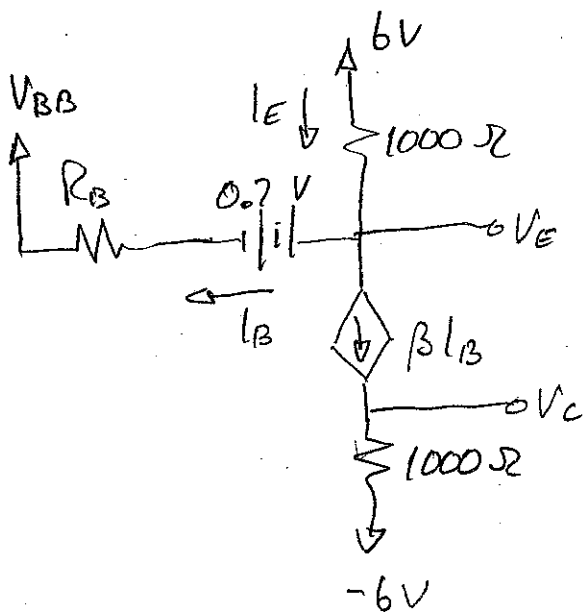 6V
V_BB
I_E
1000 Ω
R_B
0.7 V
V_E
I_B
β I_B
V_C
1000 Ω
-6V